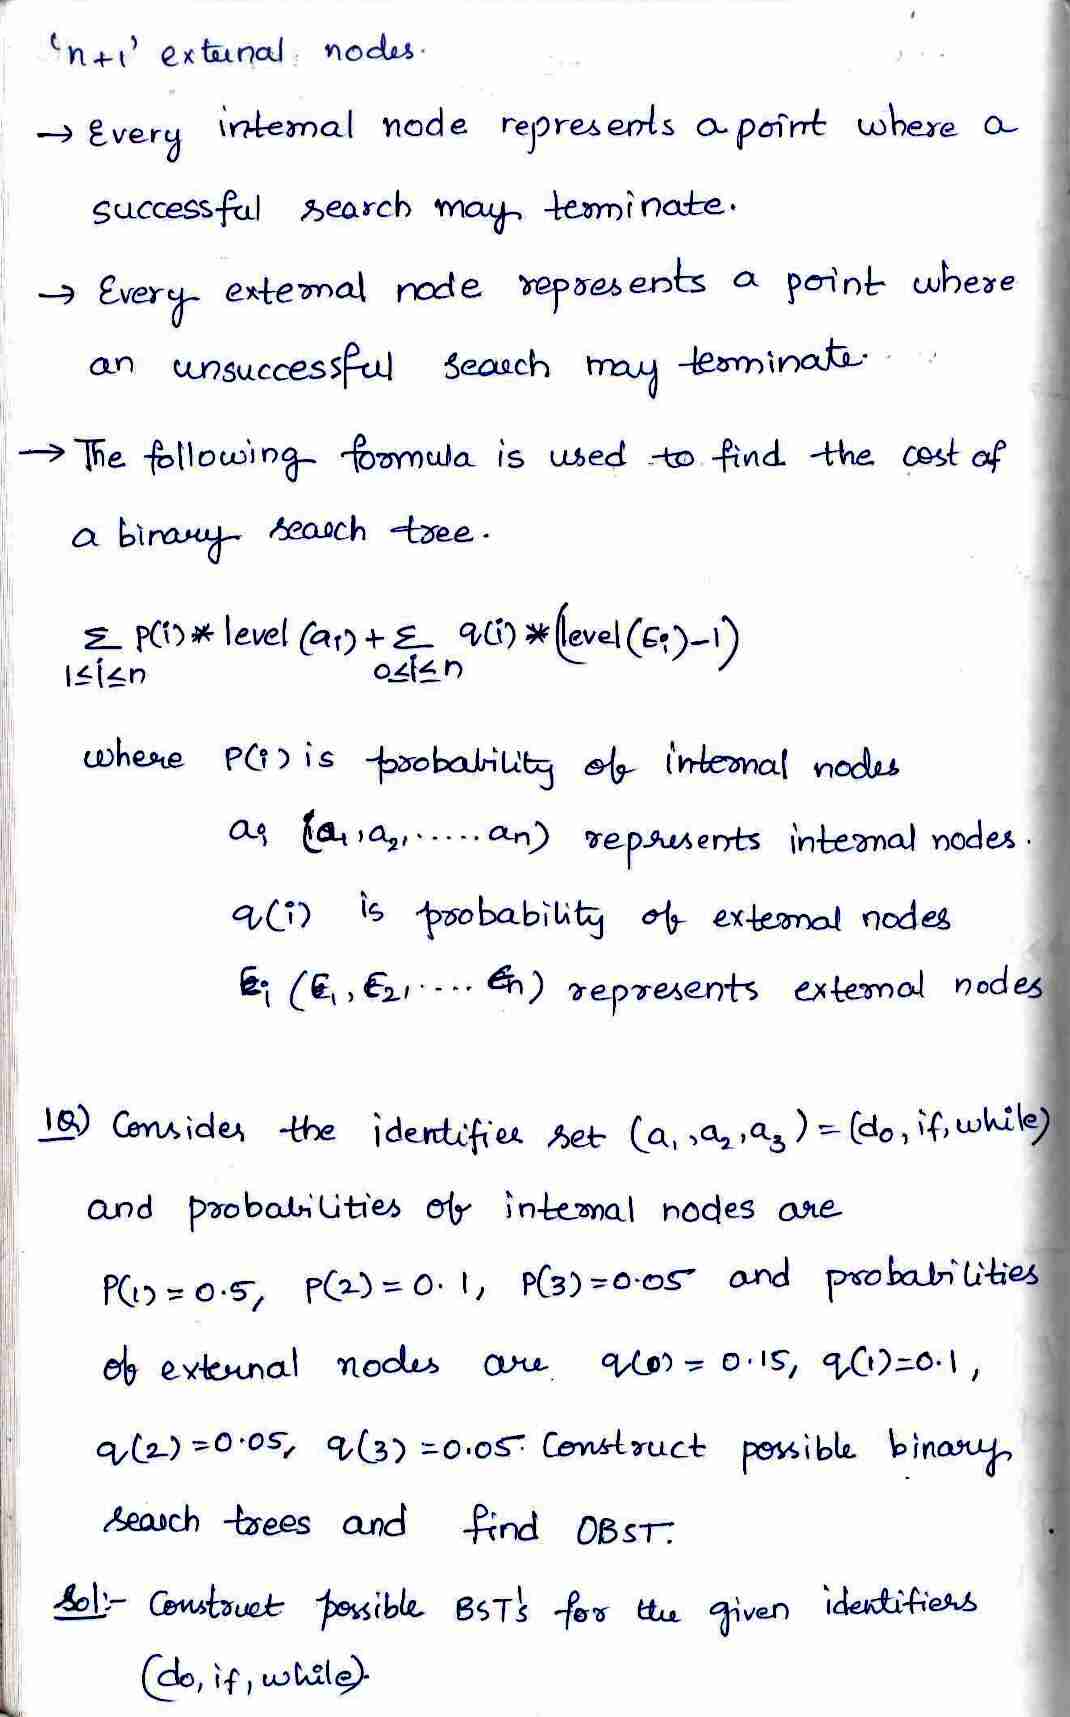 'n+1' external nodes.
→ Every internal node represents a point where a
successful search may terminate.
→ Every external node represents a point where
an unsuccessful search may terminate.
→ The following formula is used to find the cost of
a binary search tree.
Σ P(i) * level (ai) + Σ q(i) * (level(Ei)-1)
1≤i≤n 0≤i≤n
where P(i) is probability of internal nodes
ai (a1, a2, ..... an) represents internal nodes.
q(i) is probability of external nodes
Ei (E1, E2, .... En) represents external nodes
1Q) Consider the identifier set (a1, a2, a3) = (do, if, while)
and probabilities of internal nodes are
P(1) = 0.5, P(2) = 0.1, P(3) = 0.05 and probabilities
of external nodes are q(0) = 0.15, q(1) = 0.1,
q(2) = 0.05, q(3) = 0.05. Construct possible binary
search trees and find OBST.
Sol:- Construct possible BST's for the given identifiers
(do, if, while).